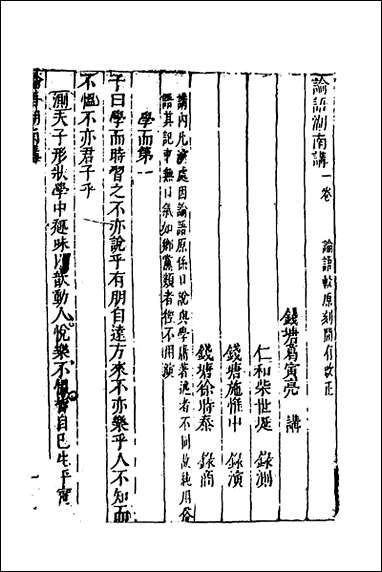 論語湖南講一卷 論語較原刻間有改正
錢塘葛寅亮 講
仁和柴世埏 錄測
錢塘施惟中 錄演
錢塘徐時泰 錄商
講內凡演處因論語原係口說與學庸著述者不同故純用俗
語其記事無口氣如鄉黨類者俱不用演
學而第一
子曰學而時習之不亦說乎有朋自遠方來不亦樂乎人不知而
不慍不亦君子乎
測夫子形狀學中趣味以歆動人悅樂不慍皆自己生平實